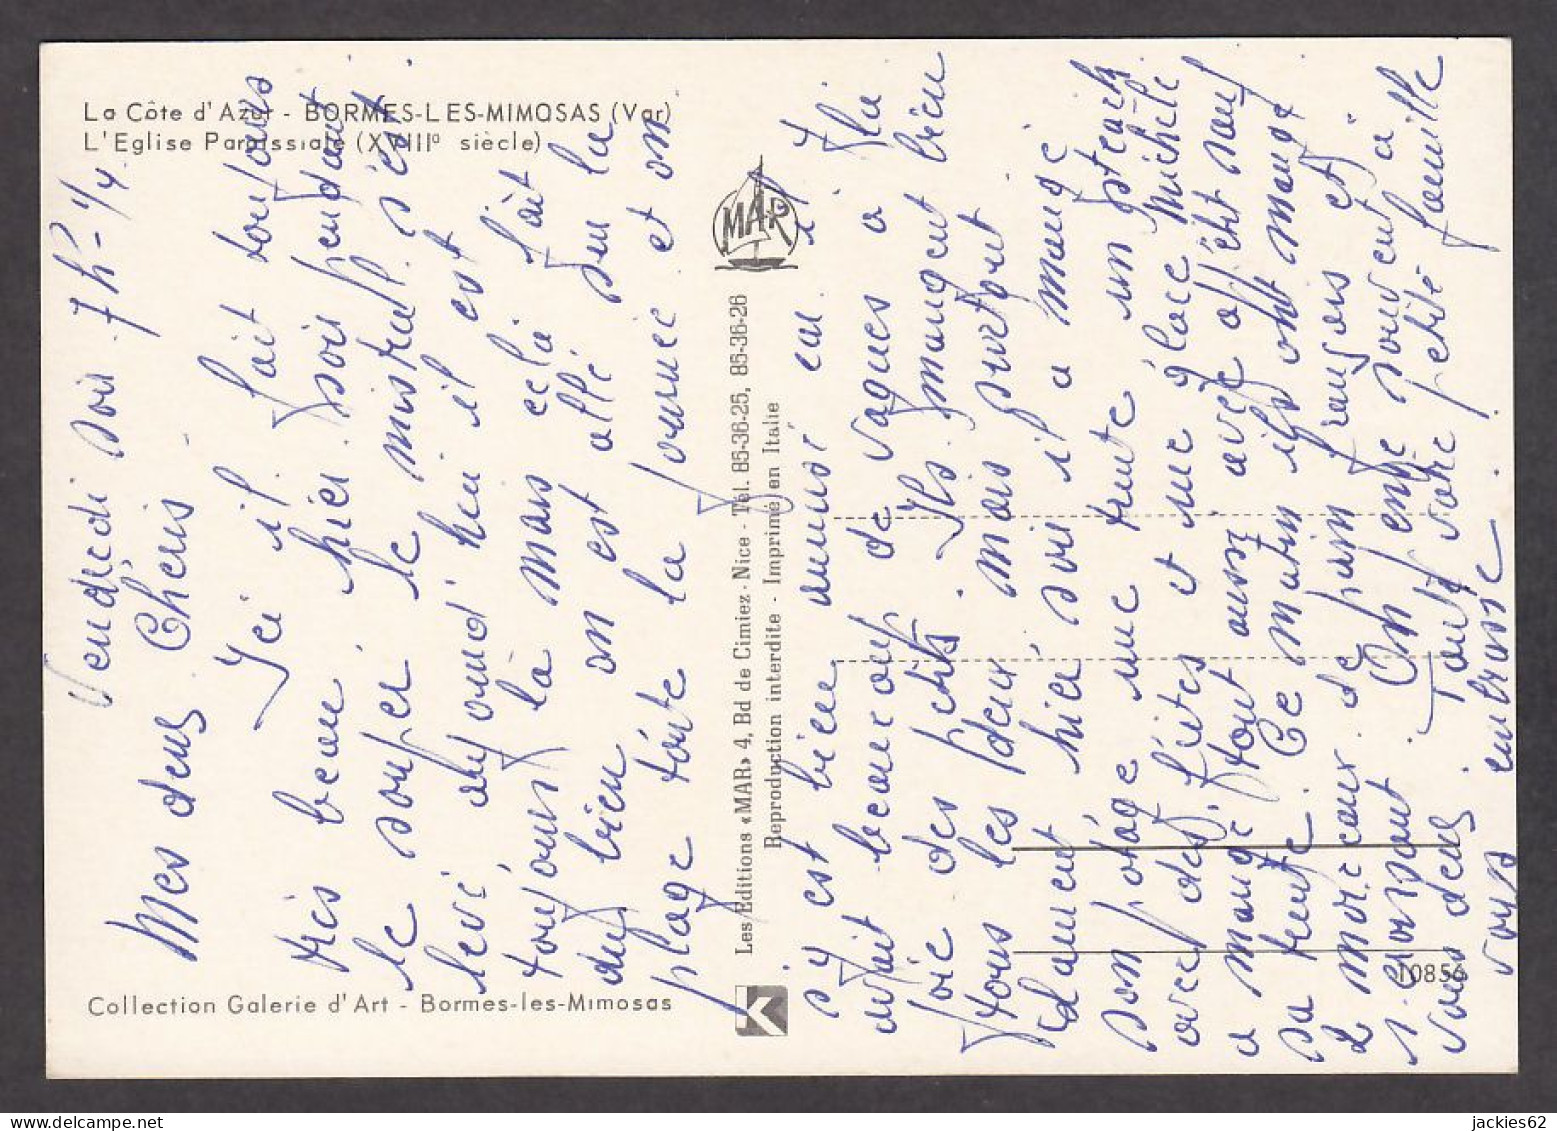 La Côte d'Azur - BORMES-LES-MIMOSAS (Var)
L'Eglise Paroissiale (XVIIIº siècle)
Vendredi soir 7h-1/4
Mes deux Chéris
Ici il fait toujours
très beau hier soir pendant
le souper le mistral s'est
levé, aujourd'hui il est
toujours là mais cela fait
du bien on est allé sur la
plage toute la journée et on
s'y est bien amusé car il y
avait beaucoup de vagues a la
joie des petits. Ils mangent bien
tous les deux mais surtout
Clément hier soir il a mangé
son potage une truite un steack
avec des frites et une glace Michèle
a mangé tout aussi avec appétit sauf
sa truite. Ce matin ils ont mangé
2 morceaux de pain français et
croissant. On pense souvent à
vous deux. Toute votre petite famille
vous embrasse.
MAR
Les Editions «MAR» 4, Bd de Cimiez - Nice - Tél. 85-36-25, 85-36-26
Reproduction interdite - Imprimé en Italie
K
10856
Collection Galerie d'Art - Bormes-les-Mimosas
jackies62